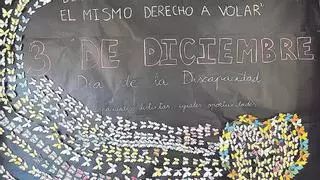 EL MISMO DERECHO A VOLAR"
3 DE DICIEMBRE
Día de la Discapacidad
distintas, iguales oportunidades